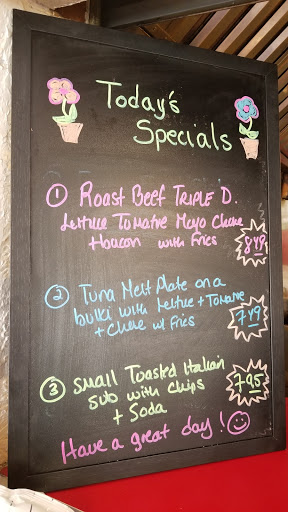 Today's
Specials
1 Roast Beef TRIPLE D.
Lettuce Tomatoe Mayo Cheese
+ bacon with Fries
8.49
2 Tuna Melt Plate on a
bulki with Lettuce + Tomatoe
+ Cheese w/ Fries
7.49
3 Small Toasted Italian
Sub with Chips
+ Soda
7.95
Have a great day!